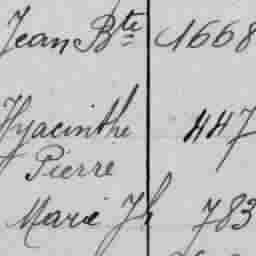 Jean Bte 1668
Hyacinthe 447
Pierre
Marie Jh 783